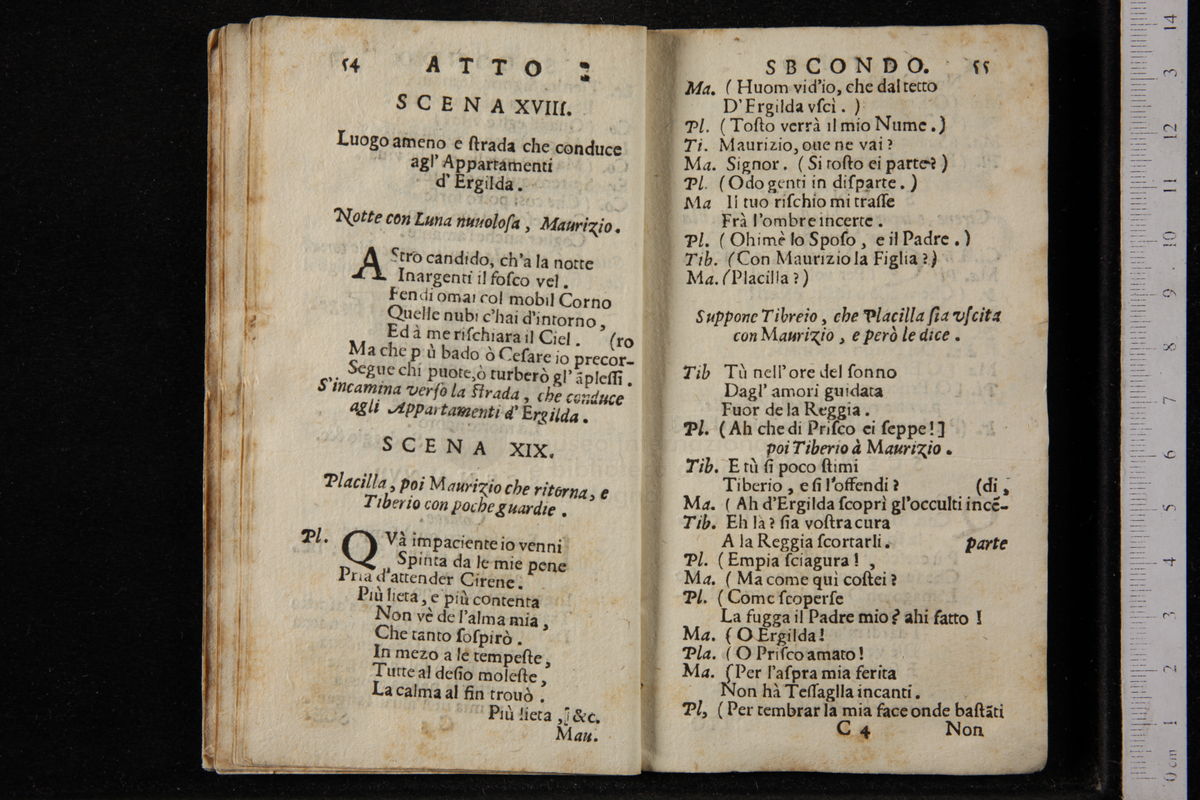 54 ATTO
SCENA XVIII.
Luogo ameno e ſtrada che conduce
agl' Appartamenti
d' Ergilda.
Notte con Luna nuuoloſa, Maurizio.
AStro candido, ch'a la notte
Inargenti il foſco vel.
Fendi omai col mobil Corno
Quelle nubi c'hai d'intorno,
Ed à me riſchiara il Ciel. (ro
Ma che più bado ò Ceſare io precor-
Segue chi puote, ò turberò gl' ãpleſſi.
S'incamina verſo la ſtrada, che conduce
agli Appartamenti d' Ergilda.
SCENA XIX.
Placilla, poi Maurizio che ritorna, e
Tiberio con poche guardie.
Pl. QVà impaciente io venni
Spinta da le mie pene
Pria d'attender Cirene.
Più lieta, e più contenta
Non vè de l'alma mia,
Che tanto ſoſpirò.
In mezo a le tempeſte,
Tutte al deſio moleſte,
La calma al fin trouò.
Più lieta, &c.
Mau.
SBCONDO. 55
Ma. (Huom vid'io, che dal tetto
D'Ergilda vſcì.)
Pl. (Toſto verrà il mio Nume.)
Ti. Maurizio, oue ne vai?
Ma. Signor. (Si toſto ei parte?)
Pl. (Odo genti in diſparte.)
Ma Il tuo riſchio mi traſſe
Frà l'ombre incerte.
Pl. (Ohimè lo Spoſo, e il Padre.)
Tib. (Con Maurizio la Figlia?)
Ma. (Placilla?)
Suppone Tibreio, che Placilla ſia vſcita
con Maurizio, e però le dice.
Tib Tù nell' ore del ſonno
Dagl' amori guidata
Fuor de la Reggia.
Pl. (Ah che di Priſco ei ſeppe!]
poi Tiberio à Maurizio.
Tib. E tù ſi poco ſtimi
Tiberio, e ſi l'offendi? (di,
Ma. (Ah d'Ergilda ſcoprì gl'occulti incẽ-
Tib. Eh là? ſia voſtra cura
A la Reggia ſcortarli. parte
Pl. (Empia ſciagura!,
Ma. (Ma come quì coſtei?
Pl. (Come ſcoperſe
La fugga il Padre mio? ahi fatto!
Ma. (O Ergilda!
Pla. (O Priſco amato!
Ma. (Per l'aſpra mia ferita
Non hà Teſſaglla incanti.
Pl, (Per tembrar la mia face onde baſtãti
C 4 Non